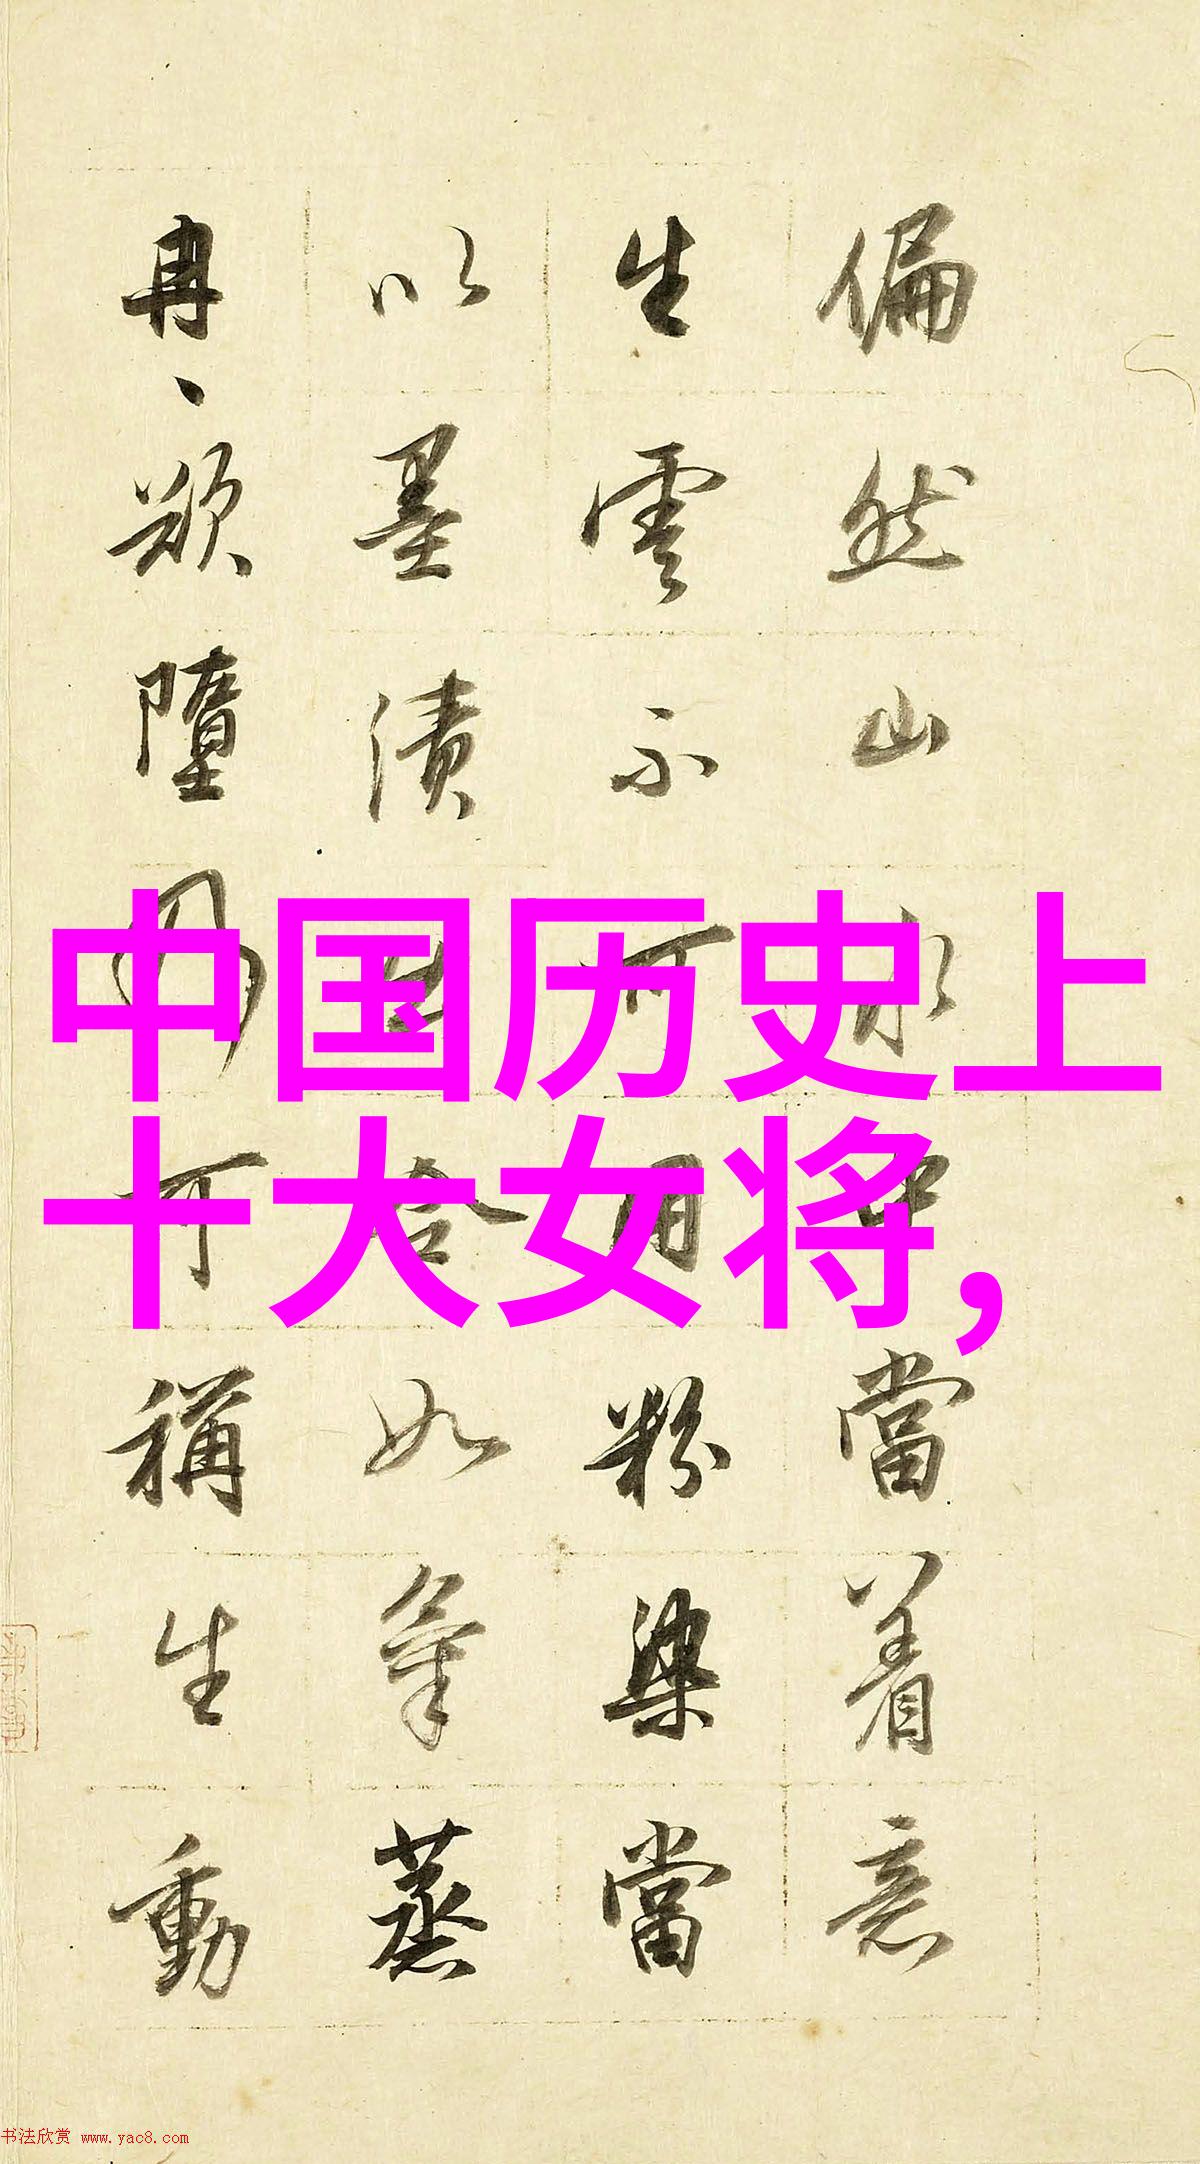 偏然山水中當着意
生雲不可用粉染當
以墨漬出令如氣蒸
冉、欲墮乃可稱生動
中国历史上
十大女将,
书法欣赏 www.yac8.com